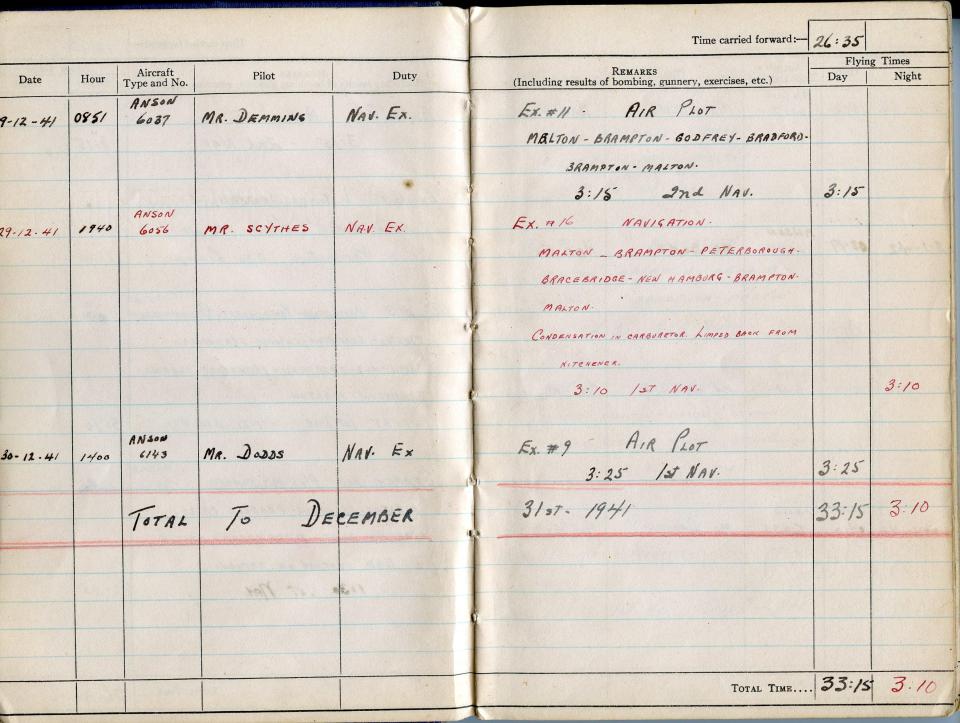 Time carried forward:— 26:35
Date Hour Aircraft Type and No. Pilot Duty Remarks (Including results of bombing, gunnery, exercises, etc.) Flying Times Day Night
9-12-41 0851 ANSON 6037 MR. DEMMING NAV. EX. EX. #11 - AIR PLOT
MALTON - BRAMPTON - GODFREY - BRADFORD-
BRAMPTON - MALTON.
3:15 2nd NAV. 3:15
29-12-41 1940 ANSON 6056 MR. SCYTHES NAV. EX. EX. #16 NAVIGATION.
MALTON - BRAMPTON - PETERBOROUGH.
BRACEBRIDGE - NEW HAMBURG - BRAMPTON-
MALTON.
CONDENSATION IN CARBURETOR. LIMPED BACK FROM
KITCHENER.
3:10 1ST NAV. 3:10
30-12-41 1400 ANSON 6143 MR. DODDS NAV. EX EX. #9 AIR PLOT
3:25 1st NAV. 3:25
TOTAL TO DECEMBER 31st - 1941 33:15 3:10
Total Time.... 33:15 3.10